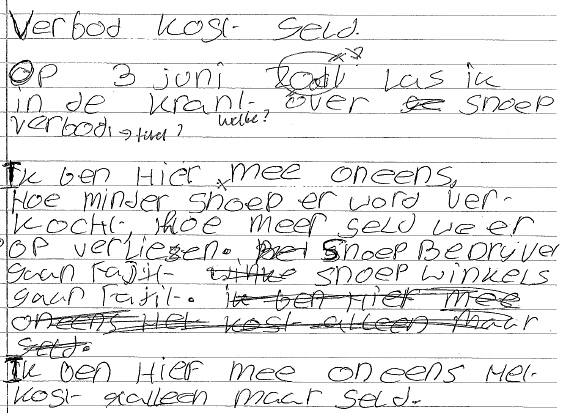 Verbod kost geld.
Op 3 juni las ik
in de krant over snoep
welke?
verbod. → titel?
Ik ben Hier mee oneens,
Hoe minder snoep er word ver-
kocht, hoe meer geld we er
op verliezen. Snoep Bedrijven
gaan failliet snoep winkels
gaan failliet. ik ben Hier mee
oneens Het kost alleen maar
geld.
Ik ben Hier mee oneens Het
kost alleen maar geld.